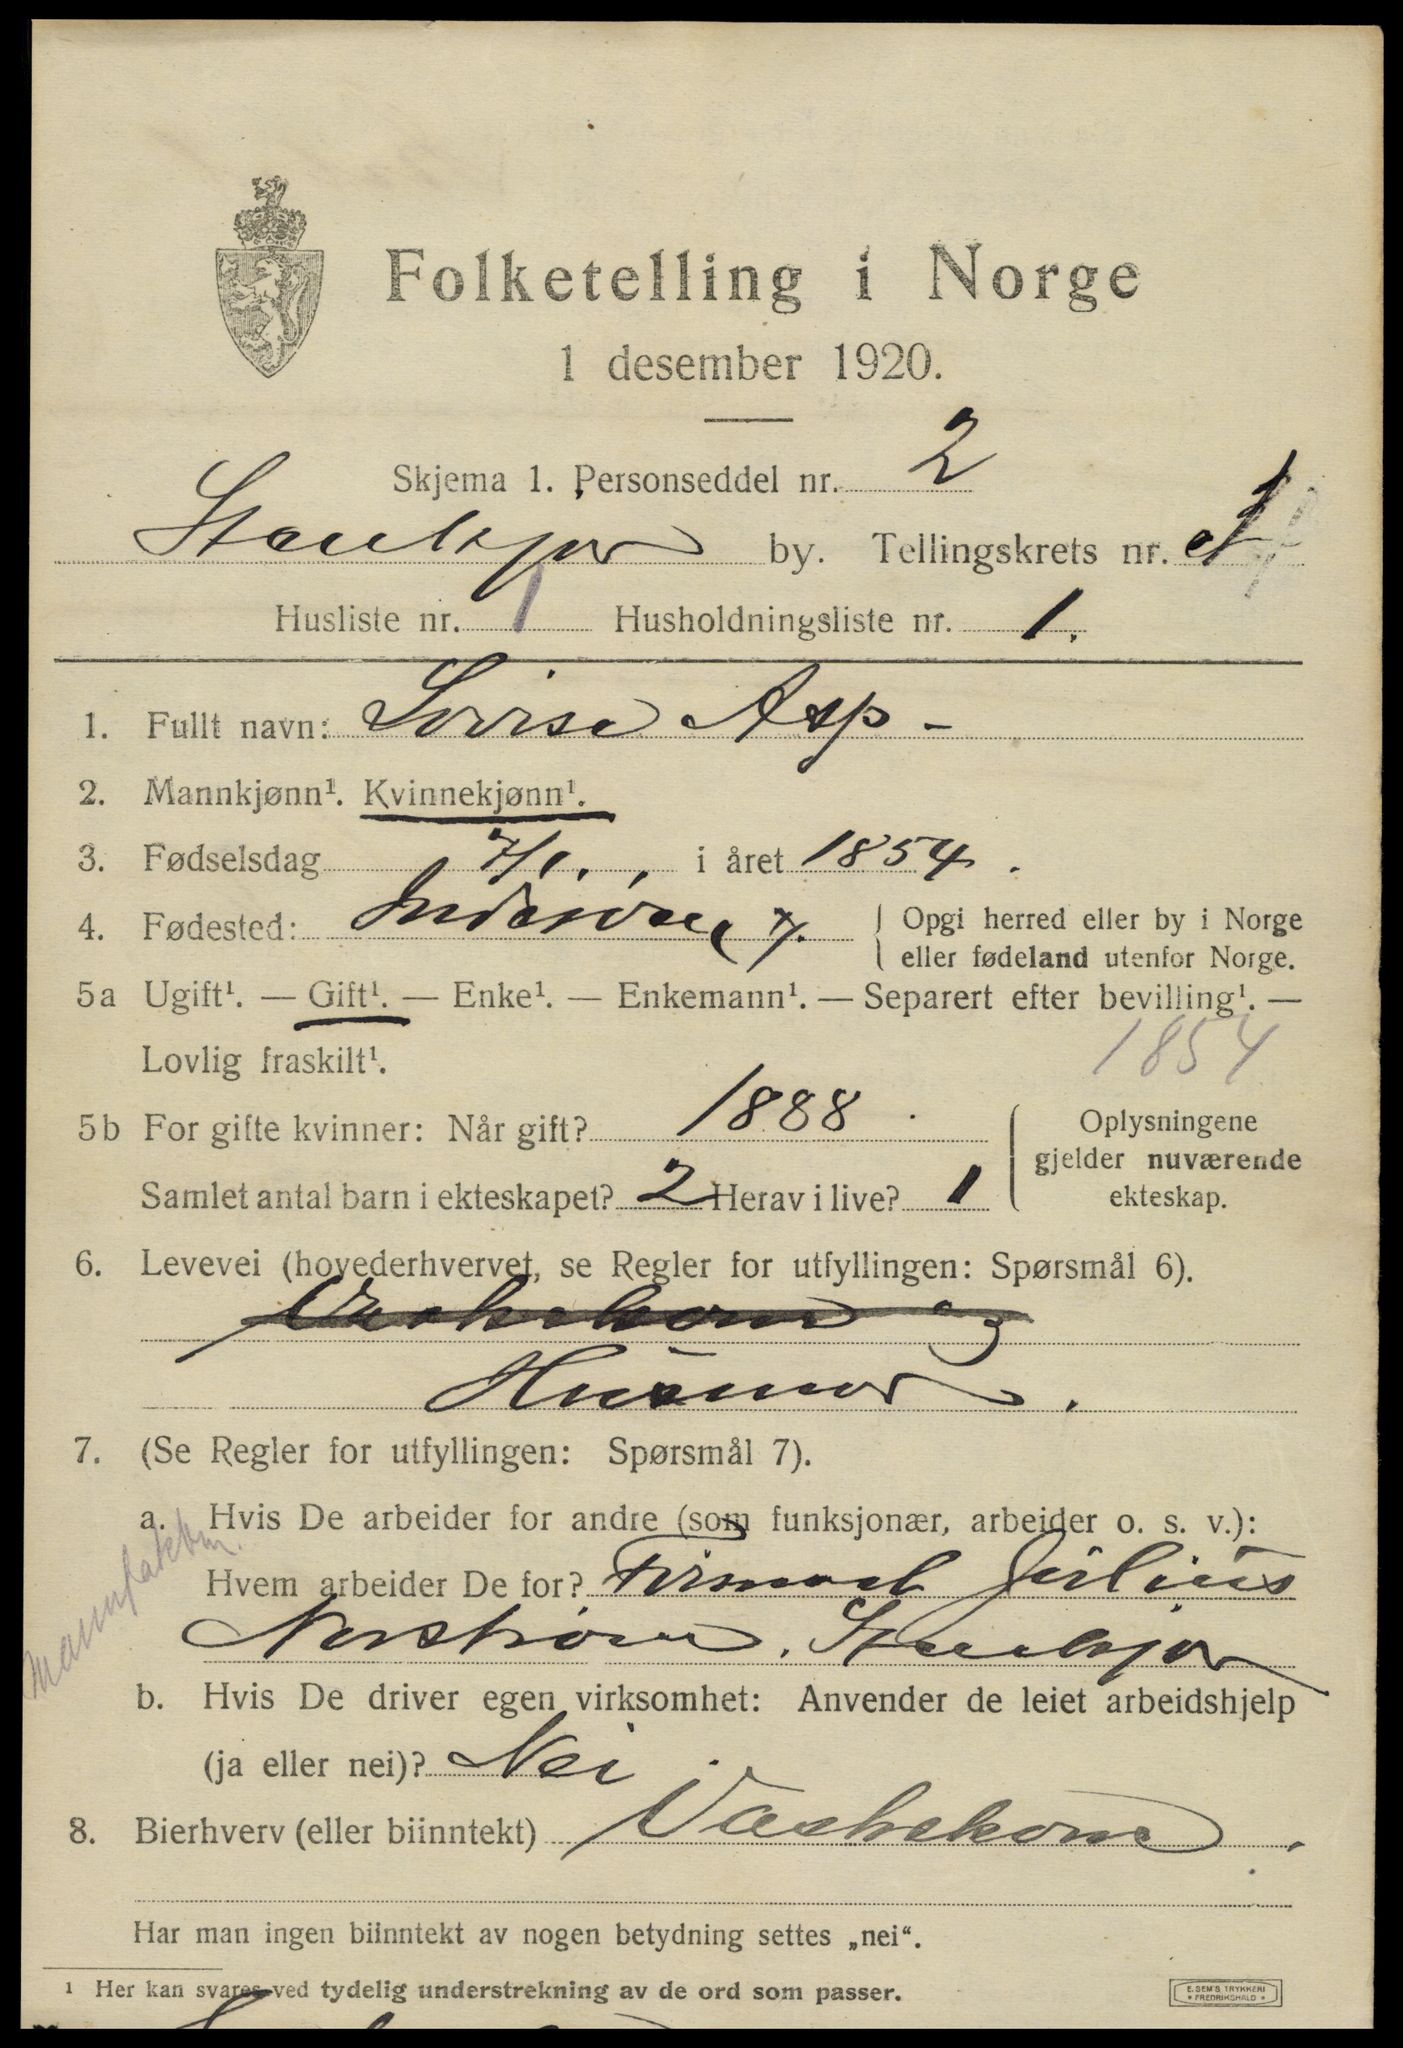 Folketelling i Norge
1 desember 1920.
Skjema 1. Personseddel nr. 2
Stenkjær by. Tellingskrets nr.
Husliste nr. 1 Husholdningsliste nr. 1.
1. Fullt navn: Lovise Asp -
2. Mannkjønn¹. Kvinnekjønn¹.
3. Fødselsdag 7/1. , i året 1854.
4. Fødested: Inderøen { Opgi herred eller by i Norge
eller fødeland utenfor Norge.
5a Ugift¹. — Gift¹. — Enke¹. — Enkemann¹. — Separert efter bevilling¹. —
Lovlig fraskilt¹. 1854
5b For gifte kvinner: Når gift? 1888. Oplysningene
gjelder nuværende
Samlet antal barn i ekteskapet? 2 Herav i live? 1 ekteskap.
6. Levevei (hovederhvervet, se Regler for utfyllingen: Spørsmål 6).
Vaskekone og
Husmor.
7. (Se Regler for utfyllingen: Spørsmål 7).
a. Hvis De arbeider for andre (som funksjonær, arbeider o. s. v.):
Hvem arbeider De for? Firmaet Julius
Stenkjær
b. Hvis De driver egen virksomhet: Anvender de leiet arbeidshjelp
(ja eller nei)? Nei.
8. Bierhverv (eller biinntekt) Vaskekone.
Har man ingen biinntekt av nogen betydning settes „nei“.
¹ Her kan svares ved tydelig understrekning av de ord som passer.
E. SEM'S TRYKKERI
* FREDRIKSHALD *